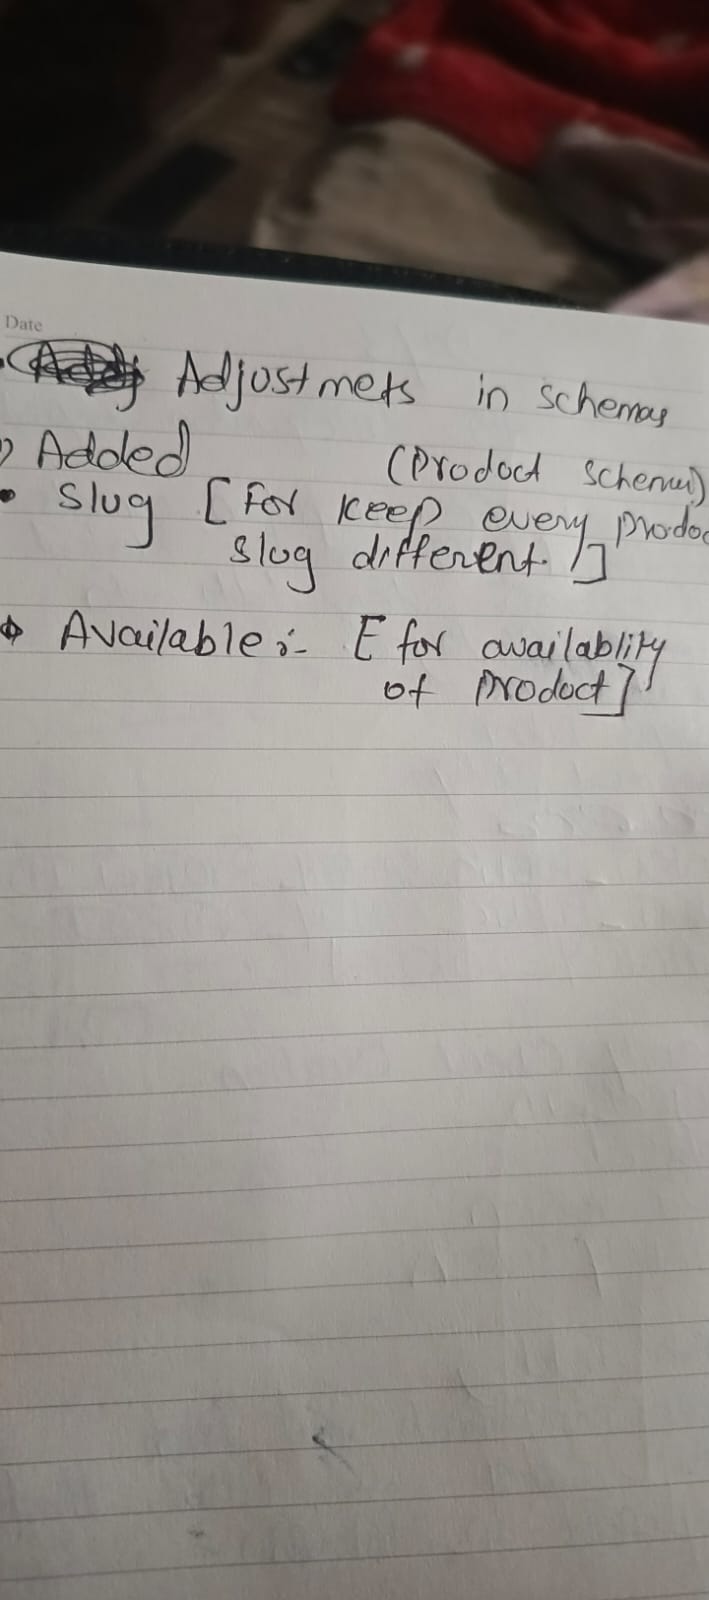 Date
Adjustmets in schemas
1) Added (Product Schema)
• Slug [For keep every produc
slug different.]
Available :- [for availablity
of product]